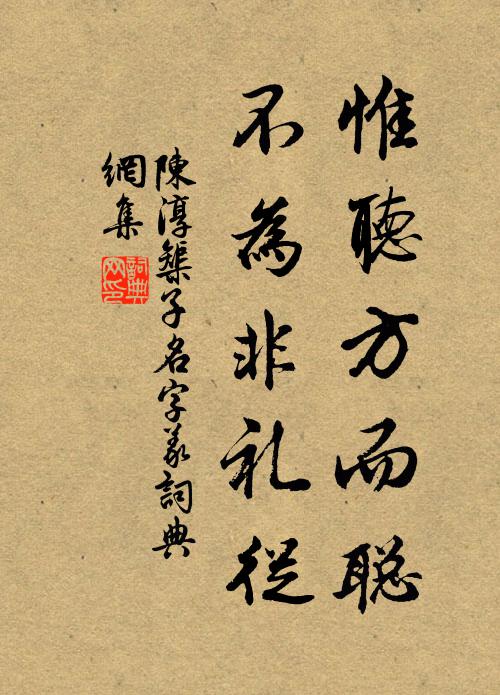 惟聽方而聪
不為非礼從
陳淳榘子名字義詞典
網集
詞典
网印